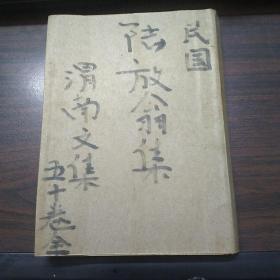 民国
陆放翁集
渭南文集
五十卷全